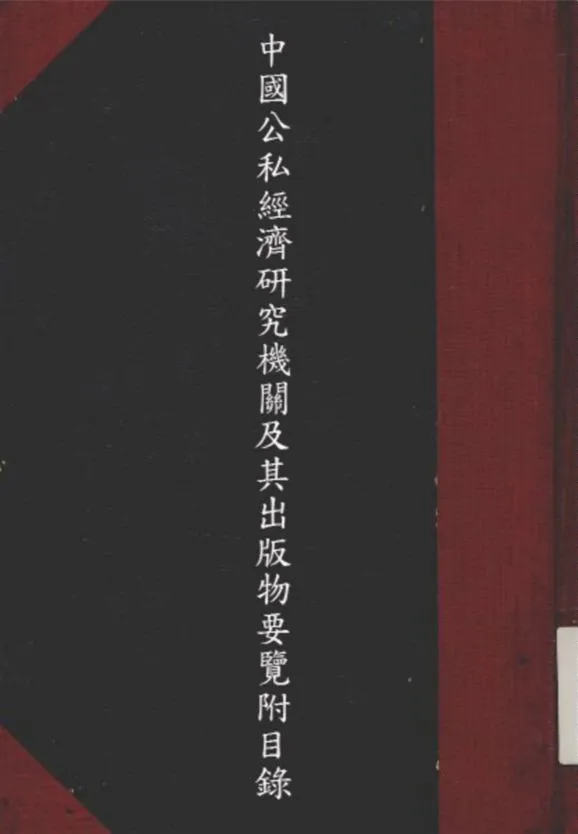 中國公私經濟研究機關及其出版物要覽附目錄